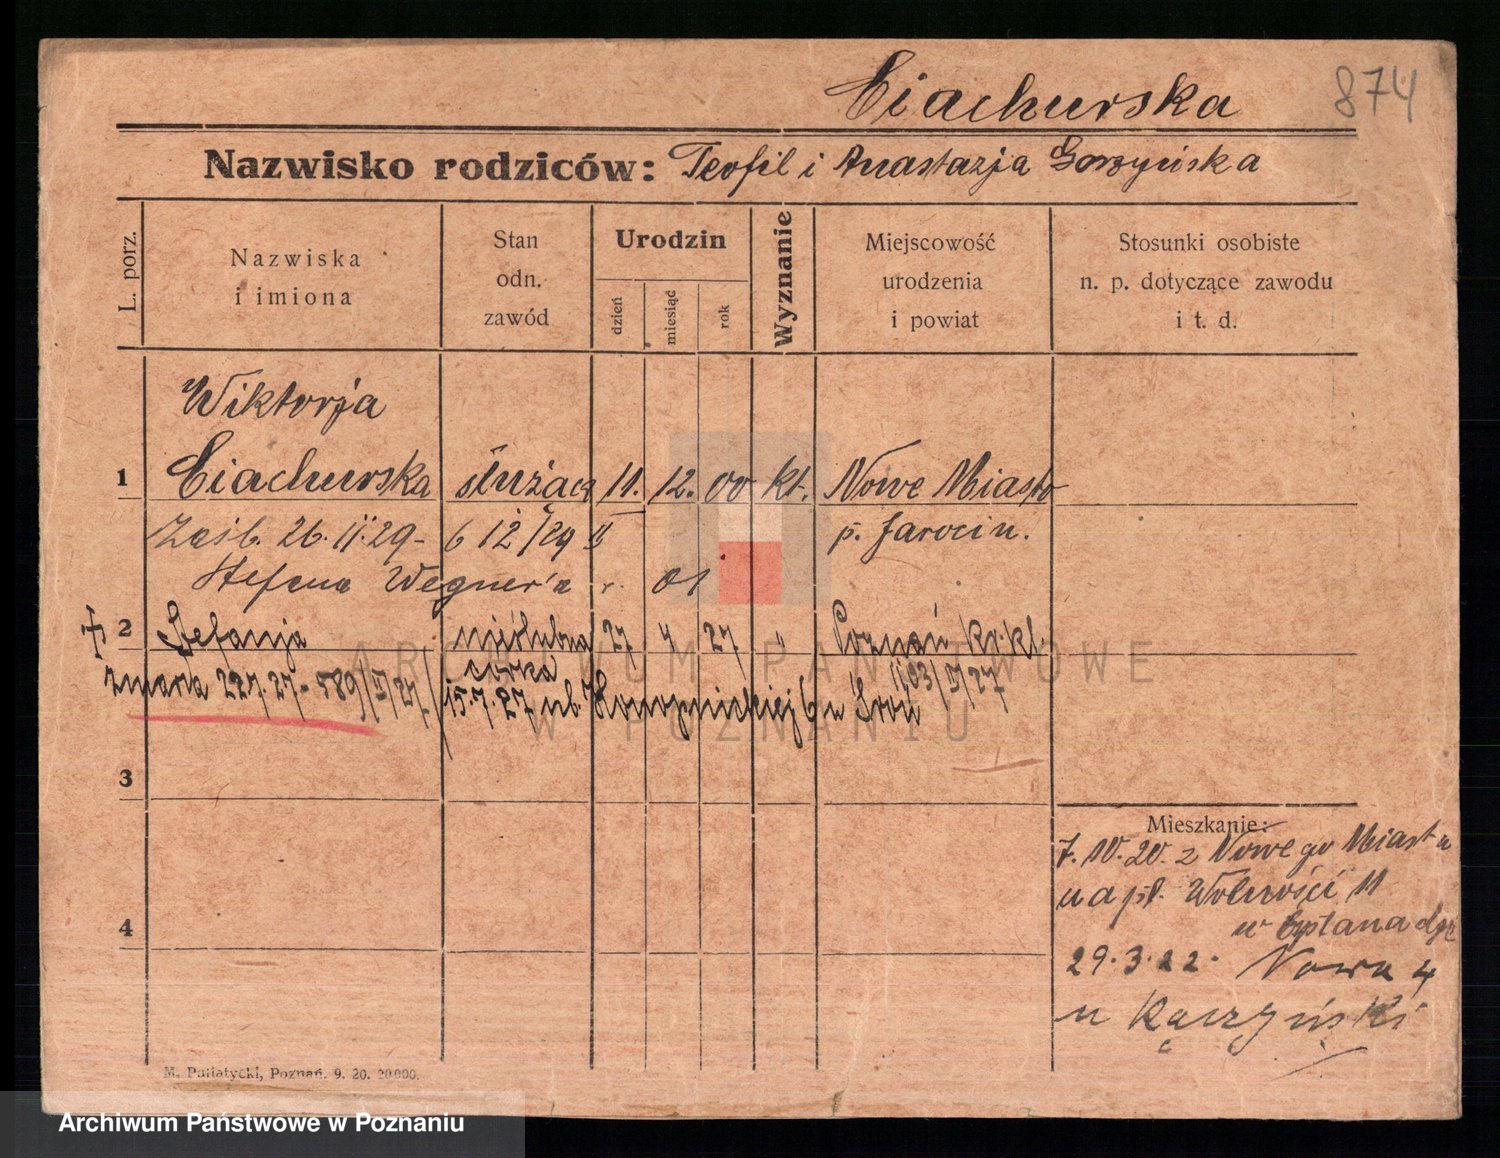 Ciachurska 874
Nazwisko rodziców: Teofil i Anastazja Gorzyńska
L. porz.
Nazwiska
i imiona
Stan
odn.
zawód
Urodzin
dzień
miesiąc
rok
Wyznanie
Miejscowość
urodzenia
i powiat
Stosunki osobiste
n. p. dotyczące zawodu
i t. d.
Wiktorja
1 Ciachurska służąca 11. 12. 00 kt. Nowe Miasto
Zaśl. 26.11.29- 6 12/29 p. Jarocin.
Stefana Wegner'a r. 01
2 Stefanja nieślubna 27 4 27 " Poznań
córka 1103/V/27
zmarła 22.7.27- 589/V/27 15.7.27 ul. Konopnickiej 6 u
3
4
Mieszkanie:
7.10.20. z Nowego Miasta
na pl. Wolności 11
u
29.3.22. Nowa 4
u Kaczyński
M. Putiatycki, Poznań. 9. 20. 20000.
ARCHIWUM PAŃSTWOWE
W POZNANIU
Archiwum Państwowe w Poznaniu